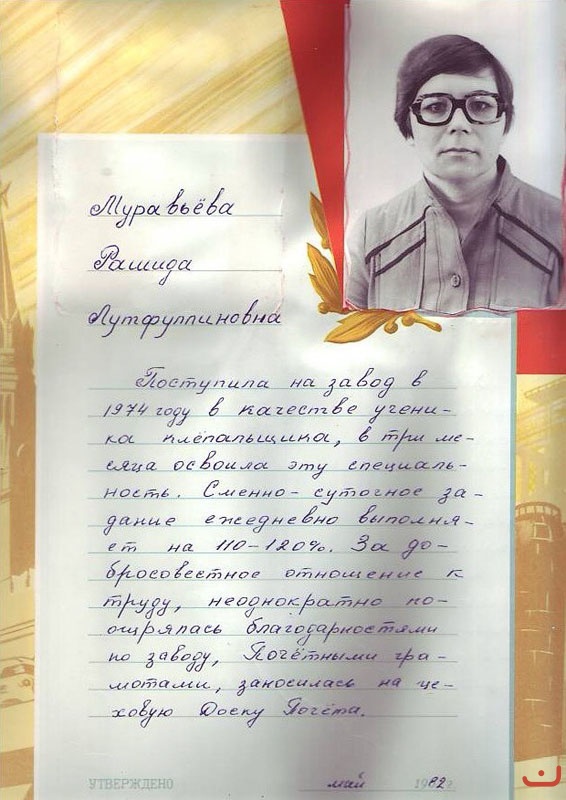 Муравьёва
Рашида
Лутфуллиновна
Поступила на завод в
1974 году в качестве учени-
ка клёпальщика, в три ме-
сяца освоила эту специаль-
ность. Сменно-суточное за-
дание ежедневно выполня-
ет на 110-120%. За до-
бросовестное отношение к
труду, неоднократно по-
ощрялась благодарностями
по заводу, Почётными гра-
мотами, заносилась на це-
ховую Доску Почёта.
УТВЕРЖДЕНО май 1982г.